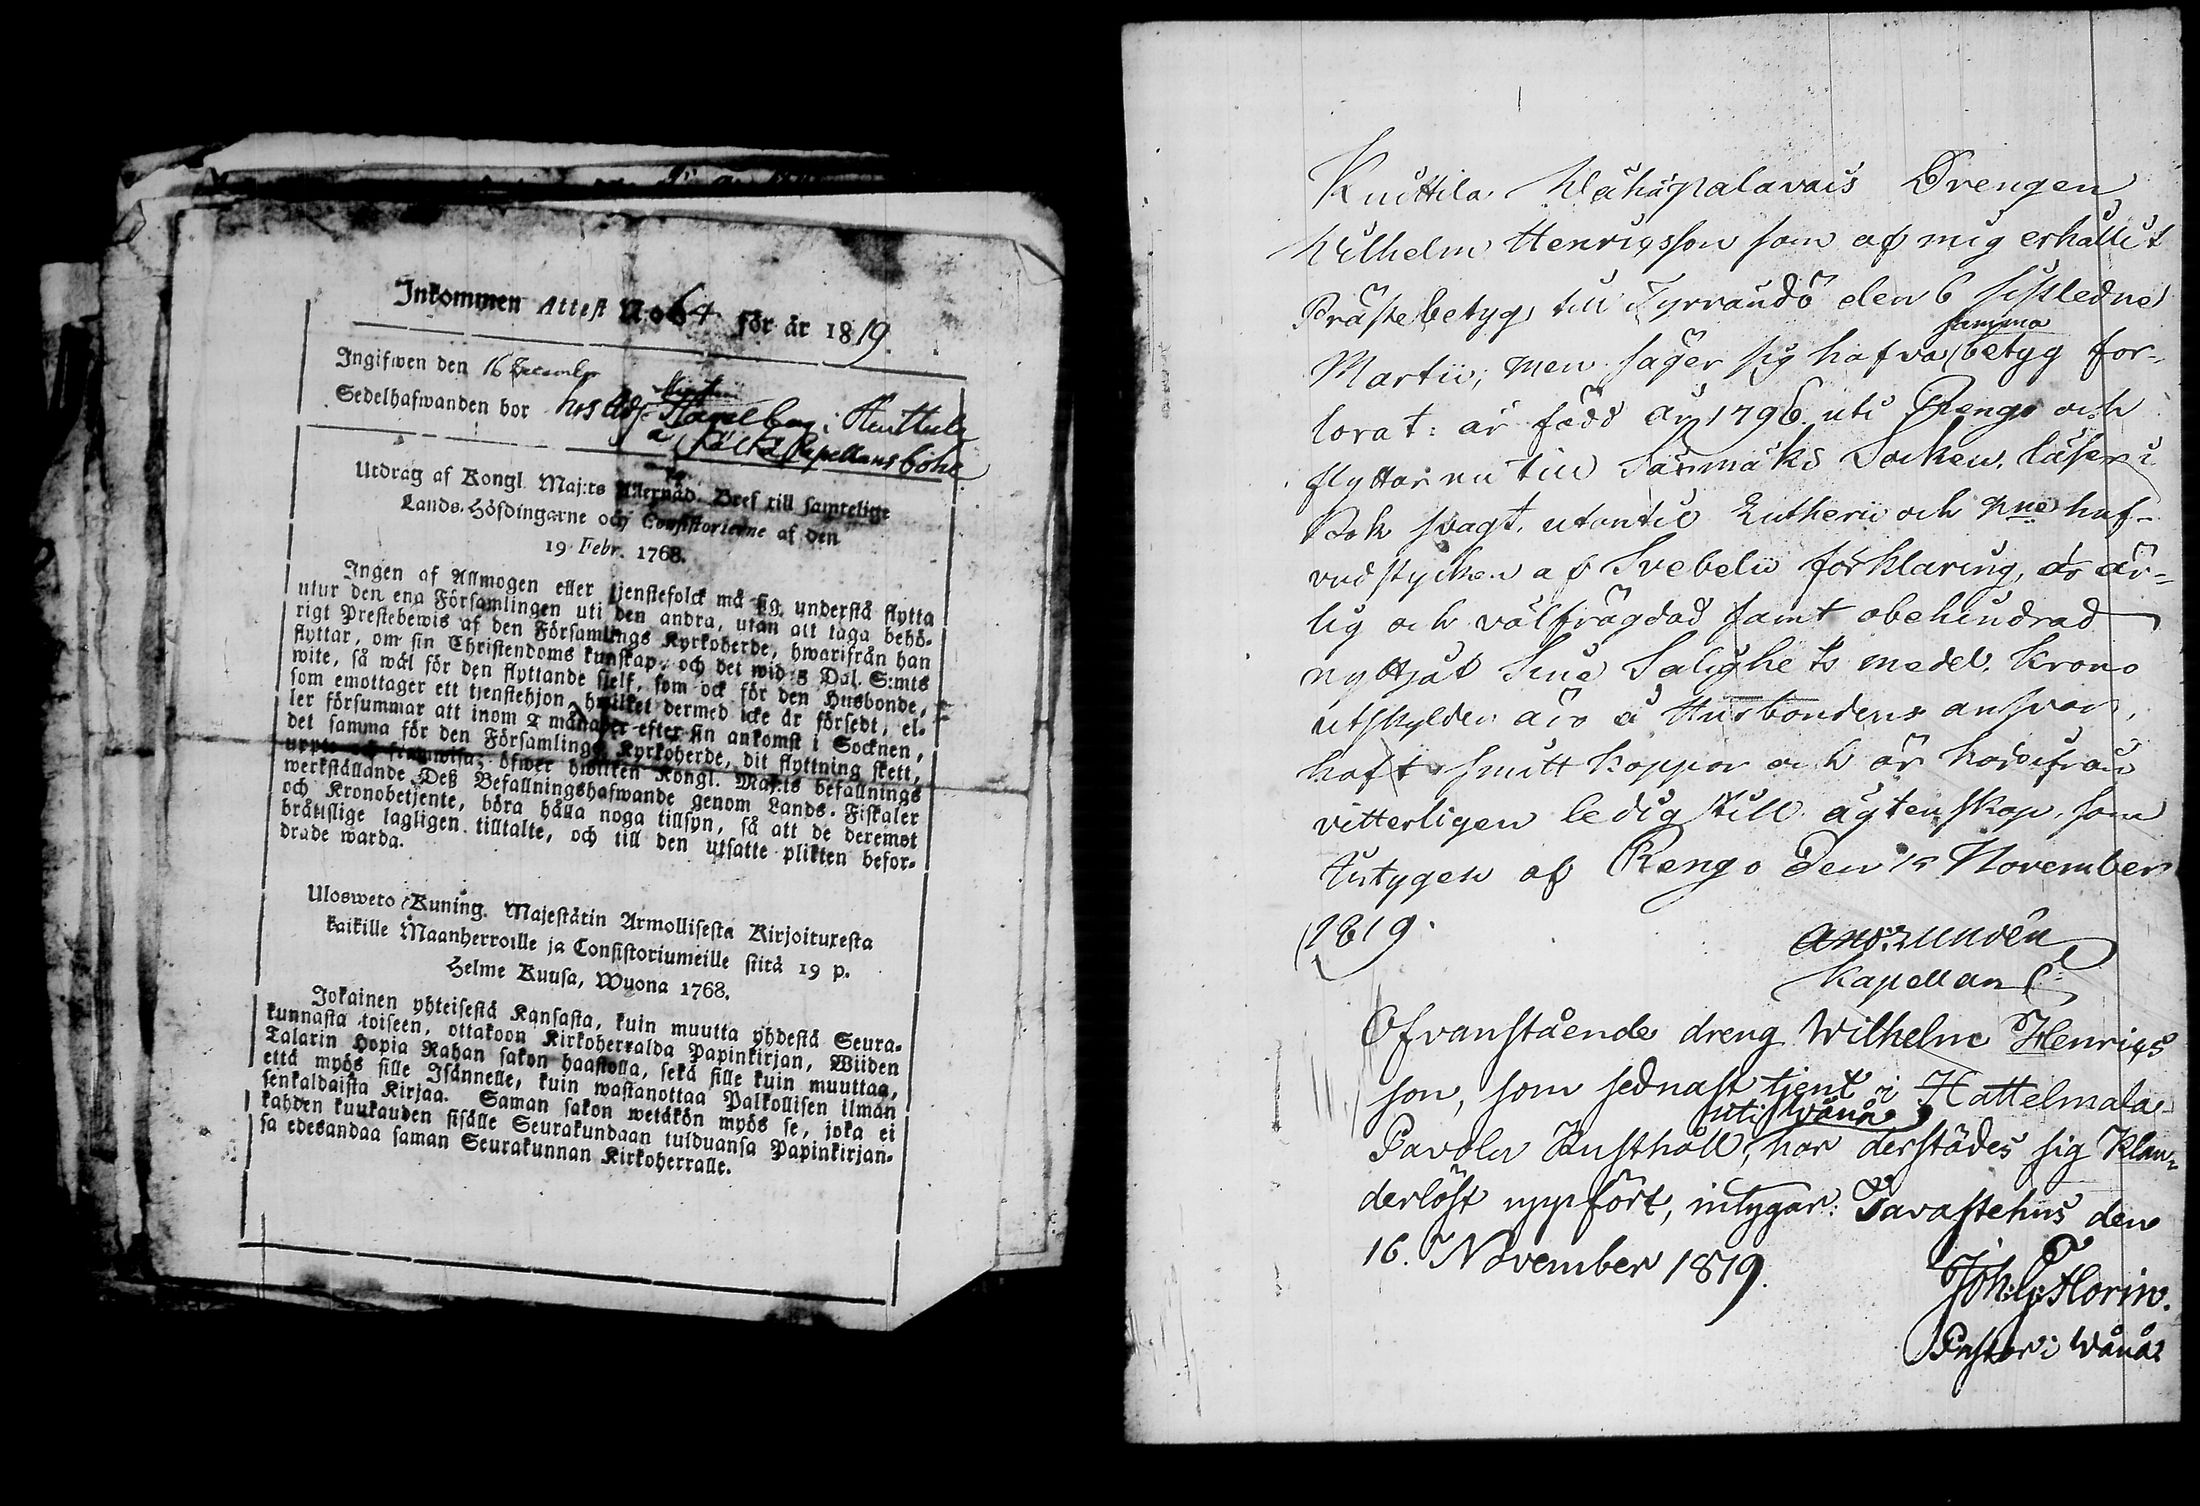 Inkommen Attest N:o 64 för år 1819.
Ingifwen den 16 December
Sedelhafwanden bor hos Adj.
i Huittula
Kapellans bohl
Utdrag af Kongl. Maj:ts Allernåd. Bref till samtelige
Lands-Höfdingarne och Consistorierne af den
19 Febr. 1768.
Ingen af Allmogen eller tjenstefolck må sig understå flytta
utur den ena Församlingen uti den andra, utan att taga behö-
rigt Prestebewis af den Församlings Kyrkoherde, hwarifrån han
flyttar, om sin Christendoms kunskap, och det wid 5 Dal. S:mts
wite, så wäl för den flyttande sjelf, som ock för den Husbonde,
som emottager ett tjenstehjon, hwilket dermed icke är försedt, el-
ler försummar att inom 2 månader efter sin ankomst i Socknen,
det samma för den Församlings Kyrkoherde, dit flyttning skett,
uppte och framwisa; öfwer hwilken Kongl. Maj:ts befallnings
werkställande Deß Befallningshafwande genom Lands-Fiskaler
och Kronobetjente, böra hålla noga tillsyn, så att de deremot
brättslige lagligen tilltalte, och till den utsatte plikten befor-
drade warda.
Uloswеto Kuning. Majestätin Armollisesta Kirjoituxesta
kaikille Maanherroille ja Consistoriumeille siitä 19 p.
Helme Kuusa, Wuona 1768.
Jokainen yhteisestä Kansasta, kuin muutta yhdestä Seura-
kunnasta toiseen, ottakoon Kirkoherralda Papinkirjan, Wiiden
Talarin Hopia Rahan sakon haastolla, sekä sille kuin muuttaa,
että myös sille Isännelle, kuin wastanottaa Palkollisen ilman
senkaldaista Kirjaa. Saman sakon wetäkön myös se, joka ei
kahden kuukauden sisälle Seurakundaan tulduansa Papinkirjan-
sa edesandaa saman Seurakunnan Kirkoherralle.
Kuittila Wähäpalavais Drengen
Wilhelm Henricsson som af mig erhållit
Prästebetyg till Tyrvändö den 6 sistledne
Martii, men säger sig hafva samma betyg för-
lorat: är född år 1796 uti Rengo och
flyttar nu till Säxmäki Socken, läser i
Bok svagt, utantil Lutherii och  huf-
vudstycken af Svebelii förklaring, är är-
lig och välfrägdad samt obehindrad
nyttjat Sine Salighets medel. Krono
utskylder äro å Husbondens ansvar,
haft smittkoppor och är härifrån
vitterligen ledig till ägtenskap, som
Intygas af Rengo den 12 November
1819.
And: Lundén
Kapellan
Ofvanstående dreng Wilhelm Henrics
son, som sednast tjent i Hattelmala
Pavola Rusthåll, uti Wånå, har derstädes sig klan-
derlöst uppfört, intygar. Tavastehus den
16. November 1819.
Joh: G: Florin.
Pastor i Wånå